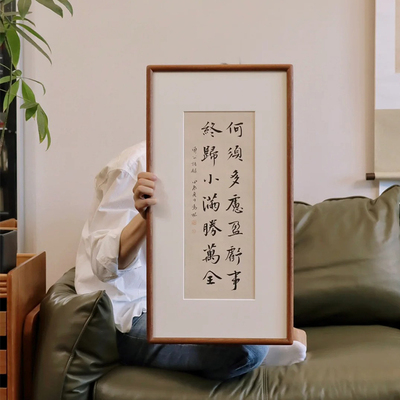 何須多慮盈虧事
終歸小滿勝萬全